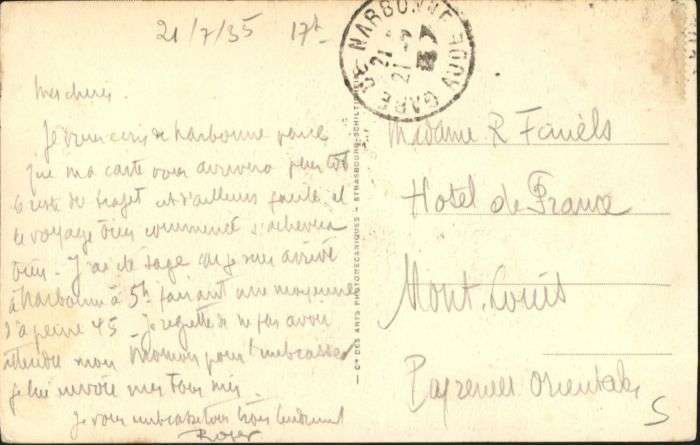 21/7/35 17h
Mes cheries.
Je vous ecris de Narbonne parce
que ma carte vous arrivera plus tôt
le reste du trajet est d'ailleurs facile et
le voyage bien commencé s'achevera
bien. J'ai été sage car je suis arrivé
à Narbonne à 5h faisant une moyenne
d'à peine 45. Je regrette de ne pas avoir
attendu mon Momon pour l'embrasser
je lui envoie mes
Je vous embrasse tous trois tendrement
Roger
GARE DE NARBONNE AUDE
21 -7
35
— Cie DES ARTS PHOTOMECANIQUES — STRASBOURG-SCHILTIGHEIM
Madame R Faniels
Hotel de France
Mont. Louis
Pyrenees Orientales